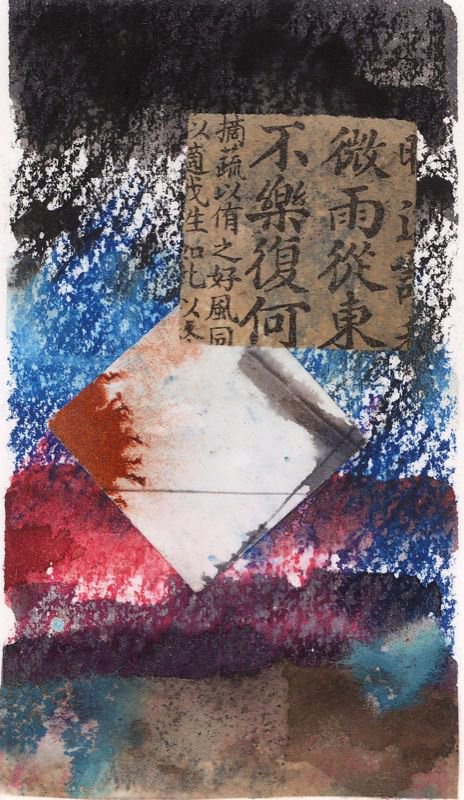 微雨從東
不樂復何
摘蔬以侑之好風同
以適 生如此以